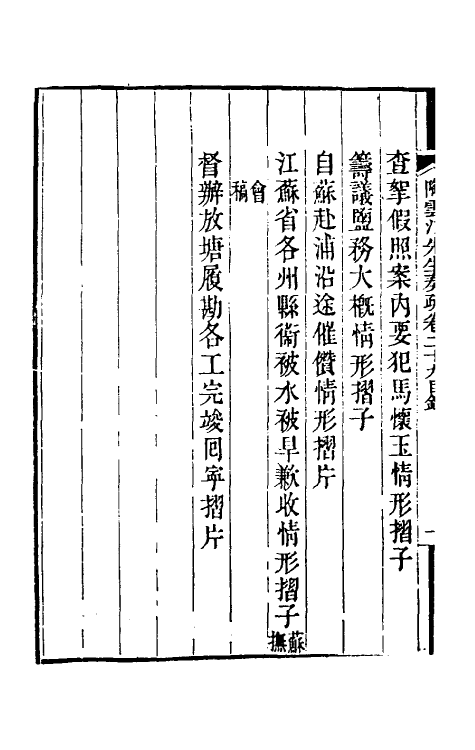 查拏假照案內要犯馬懷玉情形摺子
籌議鹽務大槪情形摺子
自蘇赴浦沿途催儹情形摺片
江蘇省各州縣衞被水被旱歉收情形摺子蘇撫
會稿
督辦放塘履勘各工完竣囘寧摺片
陶雲汀先生奏疏卷二十九目錄
一